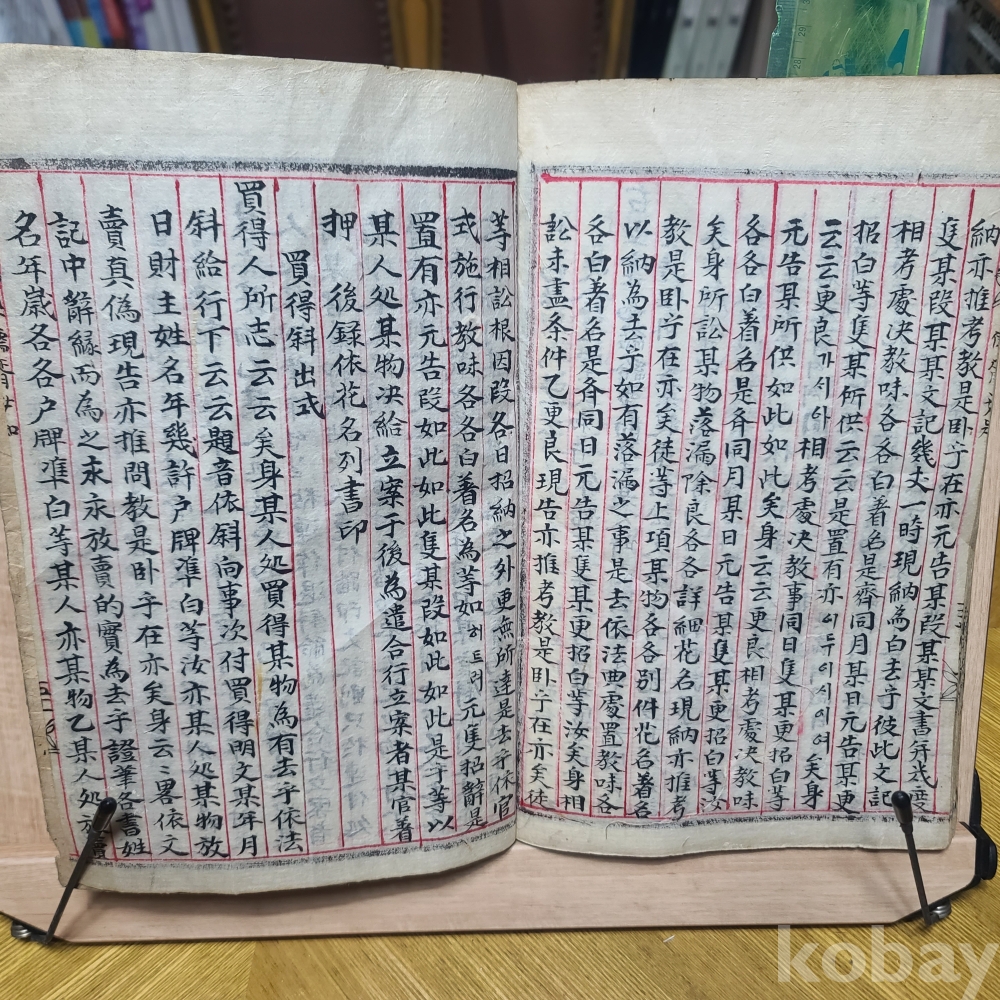 納亦推考教是卧乎在亦元告某段某某文書
隻某段某某文記幾丈一時現納為白去乎彼此文記
相考處決教味各各白着名是齊同月某日元告某更
招白等隻某所供云云是置有亦이두이시이여矣身
云云更良가시아相考處决教事同日隻某更招白等
元告某所供如此如此矣身云云更良相考處决教味
各各白着名是斉同月某日元告某隻某更招白等汝
矣身所訟某物落漏除良各各詳細花名現納亦推考
教是卧乎在亦矣徒等上項某物各各別件花名着各
以納為去乎如有落漏之事是去依法曲處置教味各
各白着名是斉同日元告某隻某更招白等汝矣身相
訟未盡条件乙更良現告亦推考教是卧乎在亦矣徒
等相訟根因段各日招納之外更無所達是去乎依官
式施行教味各各白着名為等如허트러元隻招辭是
置有亦元告段如此如此隻某段如此如此是乎等以
某人処某物决給立案于後為遣合行立案者某官着
押後録依花名列書印
買得斜出式
買得人所志云云矣身某人処買得某物為有去乎依法
斜給行下云云題音依斜向事次付買得明文某年月
日財主姓名年幾許户牌凖白等汝亦某人処某物放
賣真偽現告亦推問教是卧乎在亦矣身云云畧依文
記中辭緣而為之永永放賣的實為去乎證筆各書姓
名年歲各各户牌凖白等某人亦某物乙某人処放賣
kobay